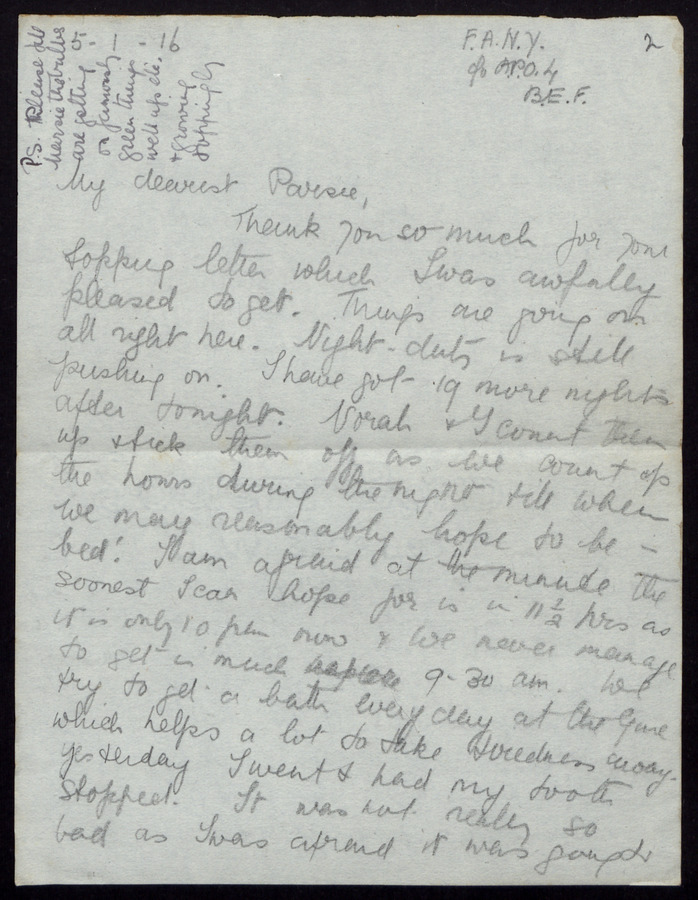 F.A.N.Y.
c/o A.P.O. 4
B.E.F.
2
5 - 1 - 16
P.S. Please tell
the bulbs
are getting
on famously
green things
well up etc.
& growing
toppingly
My dearest Parsie,
Thank you so much for your
topping letter which I was awfully
pleased to get. Things are going on
all right here. Night-duty is still
pushing on. I have got 19 more nights
after tonight. Norah & I count them
up & tick them off as we count up
the hours during the night till when
we may reasonably hope to be in
bed! I am afraid at the minute the
soonest I can hope for is in 11½ hrs as
it is only 10 pm now & we never manage
to get in much before 9-30 am. We
try to get a bath every day at the Gare
which helps a lot to take tiredness away.
Yesterday I went & had my tooth
stopped. It was not really so
bad as I was afraid it was going to